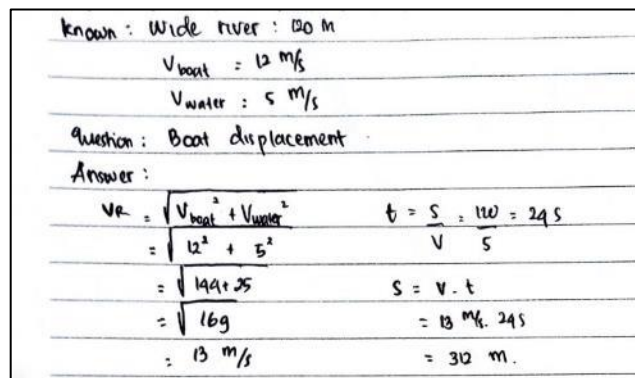 known : Wide river : 120 M
V boat = 12 m/s
V water : 5 m/s
Question : Boat displacement
Answer :
VR = √V boat² + V water²
= √12² + 5²
= √144+25
= √169
= 13 m/s
t = S/V = 120/5 = 24 s
S = V . t
= 13 m/s . 24 s
= 312 m.